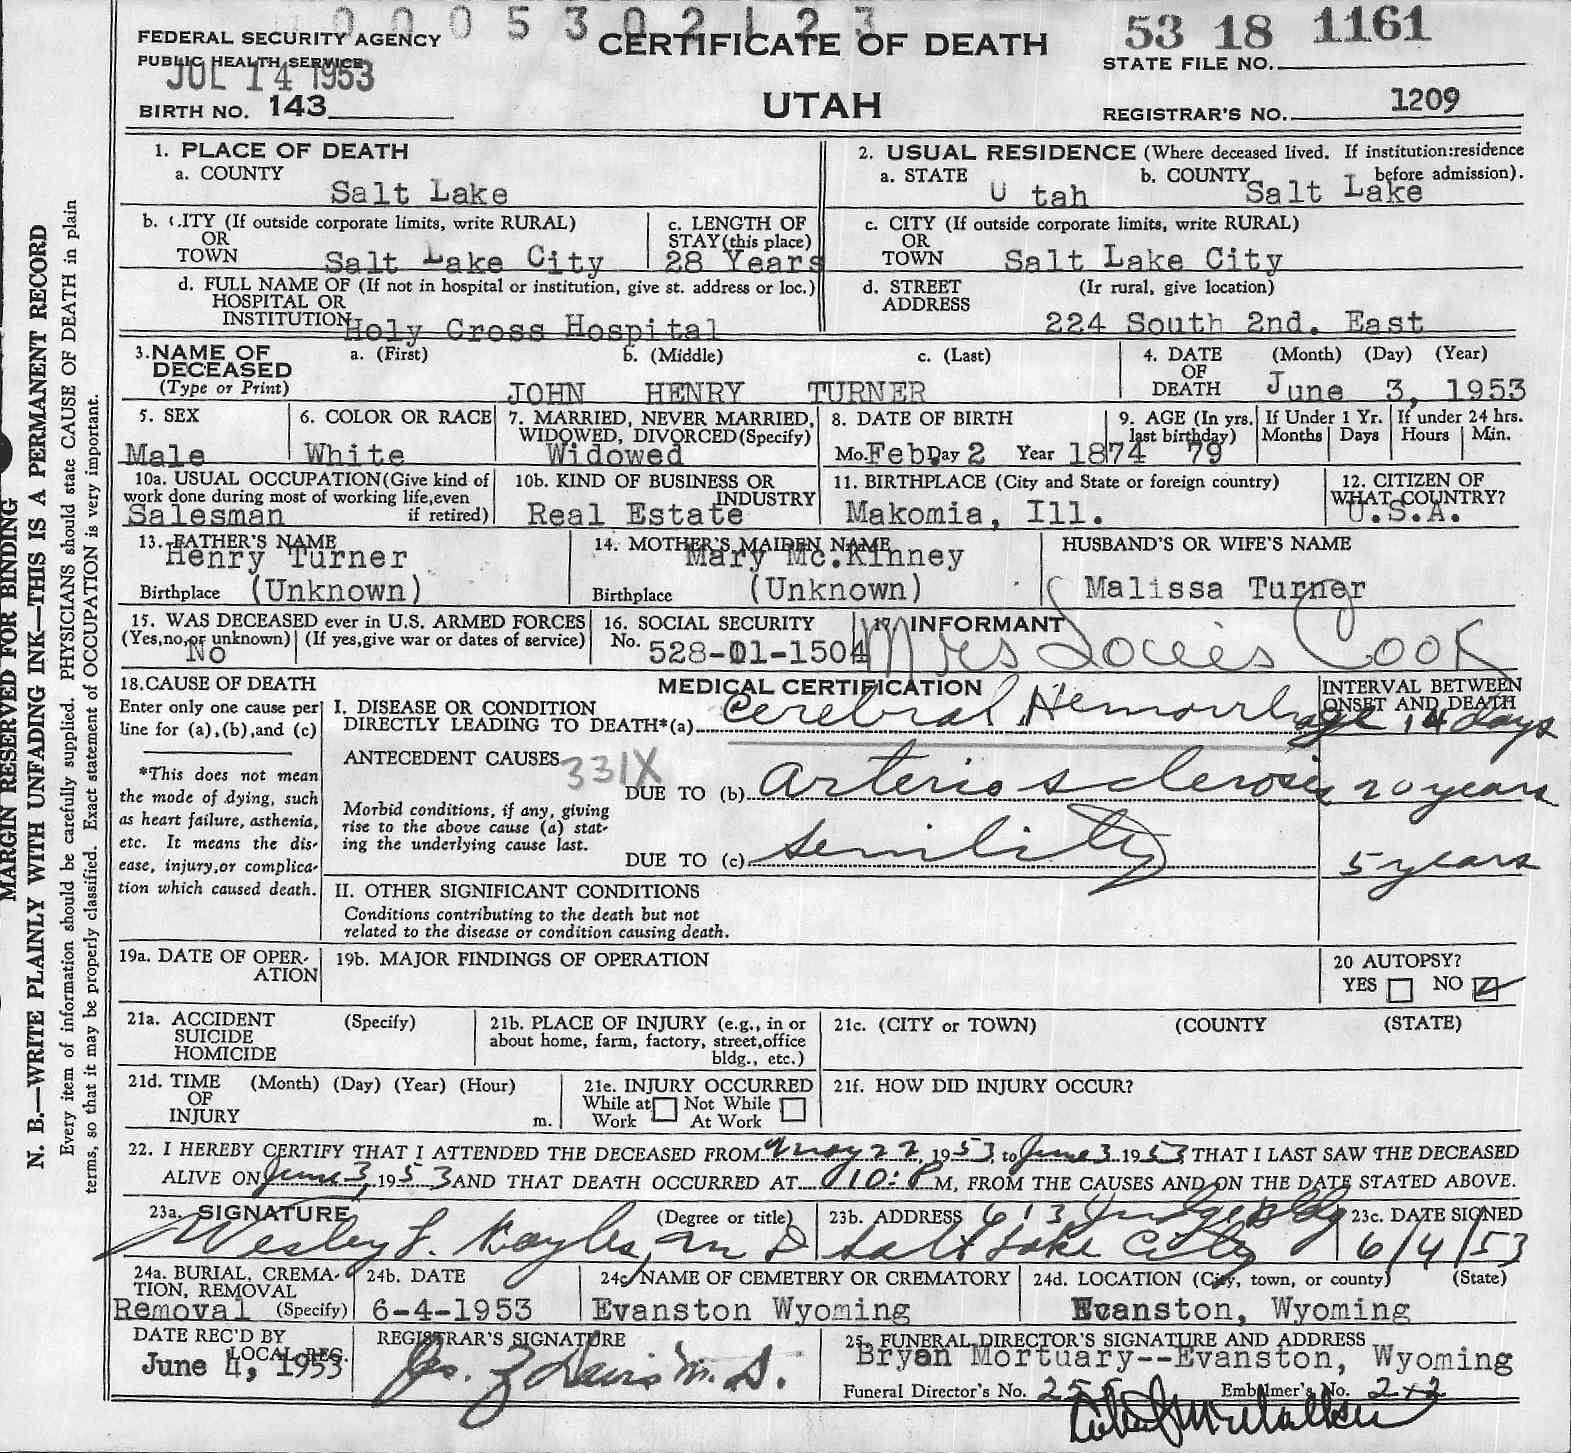 0005302123
FEDERAL SECURITY AGENCY
PUBLIC HEALTH SERVICE
JUL 14 1953
BIRTH NO. 143
CERTIFICATE OF DEATH
UTAH
53 18 1161
STATE FILE NO.
REGISTRAR'S NO. 1209
MARGIN RESERVED FOR BINDING
N. B.—WRITE PLAINLY WITH UNFADING INK—THIS IS A PERMANENT RECORD
Every item of information should be carefully supplied. PHYSICIANS should state CAUSE OF DEATH in plain
terms, so that it may be properly classified. Exact statement of OCCUPATION is very important.
1. PLACE OF DEATH
a. COUNTY
Salt Lake
2. USUAL RESIDENCE (Where deceased lived. If institution:residence
before admission).
a. STATE U tah b. COUNTY Salt Lake
b. CITY (If outside corporate limits, write RURAL)
OR
TOWN Salt Lake City
c. LENGTH OF
STAY (this place)
28 Years
c. CITY (If outside corporate limits, write RURAL)
OR
TOWN Salt Lake City
d. FULL NAME OF (If not in hospital or institution, give st. address or loc.)
HOSPITAL OR
INSTITUTION Holy Cross Hospital
d. STREET (Ir rural, give location)
ADDRESS
224 South 2nd. East
3. NAME OF
DECEASED
(Type or Print)
a. (First) b. (Middle) c. (Last)
JOHN HENRY TURNER
4. DATE (Month) (Day) (Year)
OF
DEATH June 3, 1953
5. SEX
Male
6. COLOR OR RACE
White
7. MARRIED, NEVER MARRIED,
WIDOWED, DIVORCED (Specify)
Widowed
8. DATE OF BIRTH
Mo. Feb Day 2 Year 1874
9. AGE (In yrs.
last birthday)
79
If Under 1 Yr.
Months Days
If under 24 hrs.
Hours Min.
10a. USUAL OCCUPATION (Give kind of
work done during most of working life, even
if retired)
Salesman
10b. KIND OF BUSINESS OR
INDUSTRY
Real Estate
11. BIRTHPLACE (City and State or foreign country)
Makomia, Ill.
12. CITIZEN OF
WHAT COUNTRY?
U.S.A.
13. FATHER'S NAME
Henry Turner
Birthplace (Unknown)
14. MOTHER'S MAIDEN NAME
Mary Mc.Kinney
Birthplace (Unknown)
HUSBAND'S OR WIFE'S NAME
Malissa Turner
15. WAS DECEASED ever in U.S. ARMED FORCES
(Yes,no,or unknown) (If yes,give war or dates of service)
No
16. SOCIAL SECURITY
No. 528-01-1504
17. INFORMANT
Mrs Cook
18. CAUSE OF DEATH
Enter only one cause per
line for (a),(b),and (c)
*This does not mean
the mode of dying, such
as heart failure, asthenia,
etc. It means the dis-
ease, injury,or complica-
tion which caused death.
MEDICAL CERTIFICATION
INTERVAL BETWEEN
ONSET AND DEATH
I. DISEASE OR CONDITION
DIRECTLY LEADING TO DEATH*(a) Cerebral Hemorrhage 14 days
ANTECEDENT CAUSES 331X
DUE TO (b) Arteriosclerosis 20 years
Morbid conditions, if any, giving
rise to the above cause (a) stat-
ing the underlying cause last.
DUE TO (c) Senility 5 years
II. OTHER SIGNIFICANT CONDITIONS
Conditions contributing to the death but not
related to the disease or condition causing death.
19a. DATE OF OPER-
ATION
19b. MAJOR FINDINGS OF OPERATION
20 AUTOPSY?
YES NO
21a. ACCIDENT (Specify)
SUICIDE
HOMICIDE
21b. PLACE OF INJURY (e.g., in or
about home, farm, factory, street,office
bldg., etc.)
21c. (CITY or TOWN) (COUNTY (STATE)
21d. TIME (Month) (Day) (Year) (Hour)
OF
INJURY m.
21e. INJURY OCCURRED
While at Not While
Work At Work
21f. HOW DID INJURY OCCUR?
22. I HEREBY CERTIFY THAT I ATTENDED THE DECEASED FROM May 22, 1953, to June 3 1953, THAT I LAST SAW THE DECEASED
ALIVE ON June 3, 1953 AND THAT DEATH OCCURRED AT 10: P M, FROM THE CAUSES AND ON THE DATE STATED ABOVE.
23a. SIGNATURE (Degree or title)
Wesley M D
23b. ADDRESS 613 Judge Bldg
Salt Lake City
23c. DATE SIGNED
6/4/53
24a. BURIAL, CREMA-
TION, REMOVAL
Removal (Specify)
24b. DATE
6-4-1953
24c. NAME OF CEMETERY OR CREMATORY
Evanston Wyoming
24d. LOCATION (City, town, or county) (State)
Evanston, Wyoming
DATE REC'D BY
LOCAL REG.
June 4, 1953
REGISTRAR'S SIGNATURE
Davis M.D.
25. FUNERAL DIRECTOR'S SIGNATURE AND ADDRESS
Bryan Mortuary--Evanston, Wyoming
Funeral Director's No. Embalmer's No.